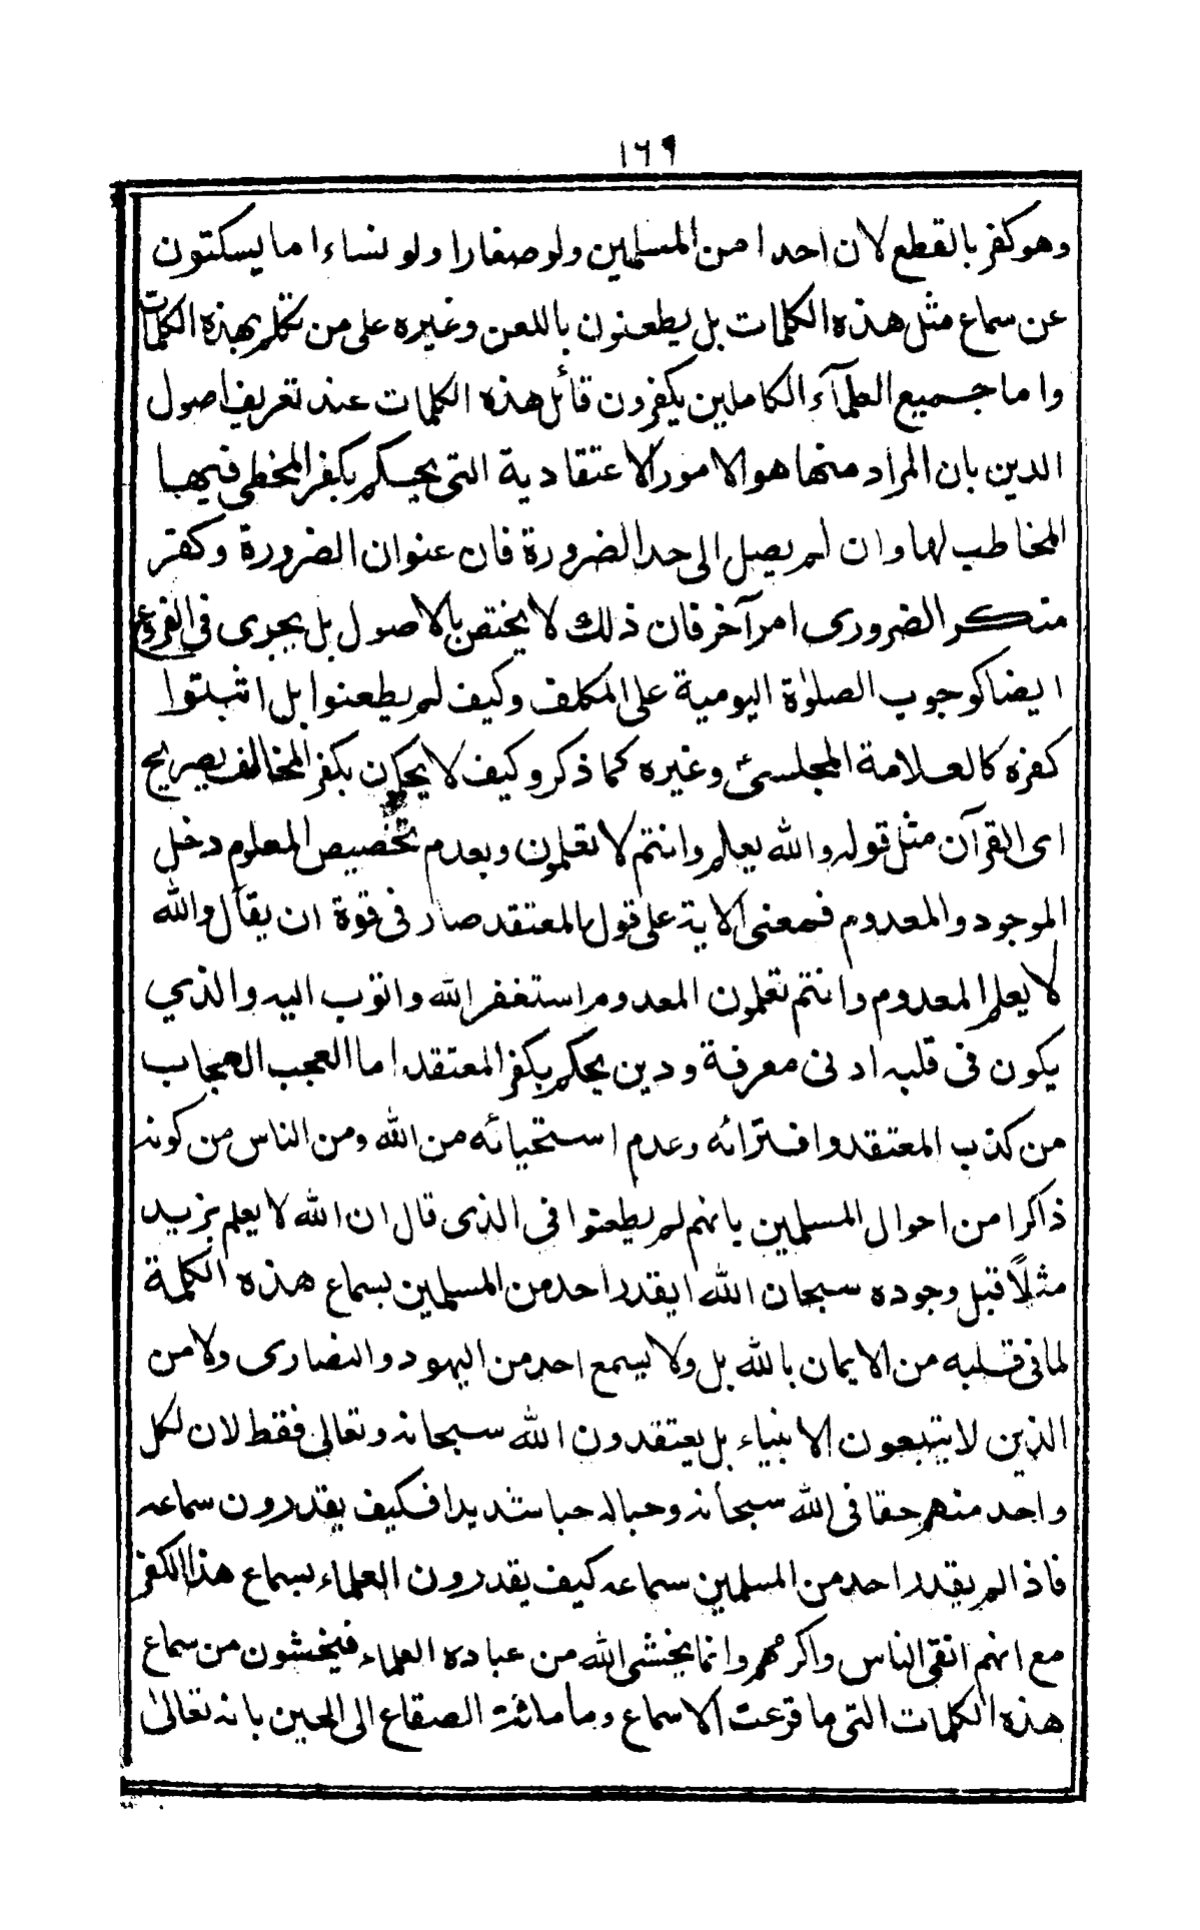 ١٦٩
وهو كفر بالقطع لان احدا من المسلمين ولو صغارا ولو نساءا ما يسكتون
عن سماع مثل هذه الكلمات بل يطعنون باللعن وغيره على من تكلم بهذه الكلمات
واما جميع العلمآء الكاملين يكفرون قائل هذه الكلمات عند تعريف اصول
الدين بان المراد منها هو الامور الاعتقادية التى يحكم بكفر المخطى فيها
المخاطب لها وان لم يصل الى حد الضرورة فان عنوان الضرورة وكفر
منكر الضرورى امر آخر فان ذلك لا يختص بالاصول بل يجرى فى الفروع
ايضا كوجوب الصلوٰة اليومية على المكلف وكيف لم يطعنوا بل اثبتوا
كفره كالعلامة المجلسى وغيره كما ذكر وكيف لا يحكمان بكفر المخالف بصريح
اى القرآن مثل قوله والله يعلم وانتم لا تعلمون وبعدم تخصيص المعلوم دخل
الموجود والمعدوم فمعنى الاية على قول المعتقد صار فى قوة ان يقال والله
لا يعلم المعدوم وانتم تعلمون المعدوم استغفر الله واتوب اليه والذي
يكون فى قلبه ادنى معرفة ودين يحكم بكفر المعتقد اما العجب العجاب
من كذب المعتقد وافترائه وعدم استحيائه من الله ومن الناس من كونه
ذاكرا من احوال المسلمين بانهم لم يطعنوا فى الذى قال ان الله لا يعلم بزيد
مثلًا قبل وجوده سبحان الله ايقدر احد من المسلمين بسماع هذه الكلمة
لما فى قلبه من الايمان بالله بل ولا يسمع احد من اليهود والنصارى ولا من
الذين لا يتبعون الانبياء بل يعتقدون الله سبحانه وتعالى فقط لان لكل
واحد منهم حقا فى الله سبحانه وحبا له حبا شديدا فكيف يقدرون سماعه
فاذا لم يقدر احد من المسلمين سماعه كيف يقدرون العلماء بسماع هذا الكفر
مع انهم اتقى الناس واكرمهم وانما يخشى الله من عباده العلماء فيخشون من سماع
هذه الكلمات التى ما قرعت الاسماع وما الصقاع الى الحين بانه تعالىٰ